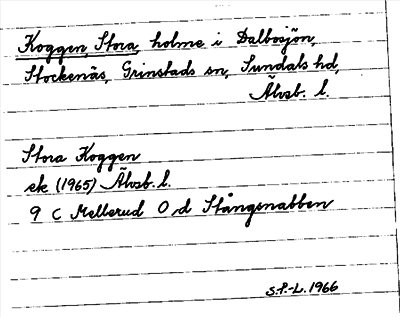 Koggen, Stora, holme i Dalbosjön,
Stockenäs, Grinstads sn, Sundals hd,
Älvsb. l.
Stora Koggen
ek (1965) Älvsb. l.
9 C Mellerud O d Stångsnabben
S.P.-L. 1966